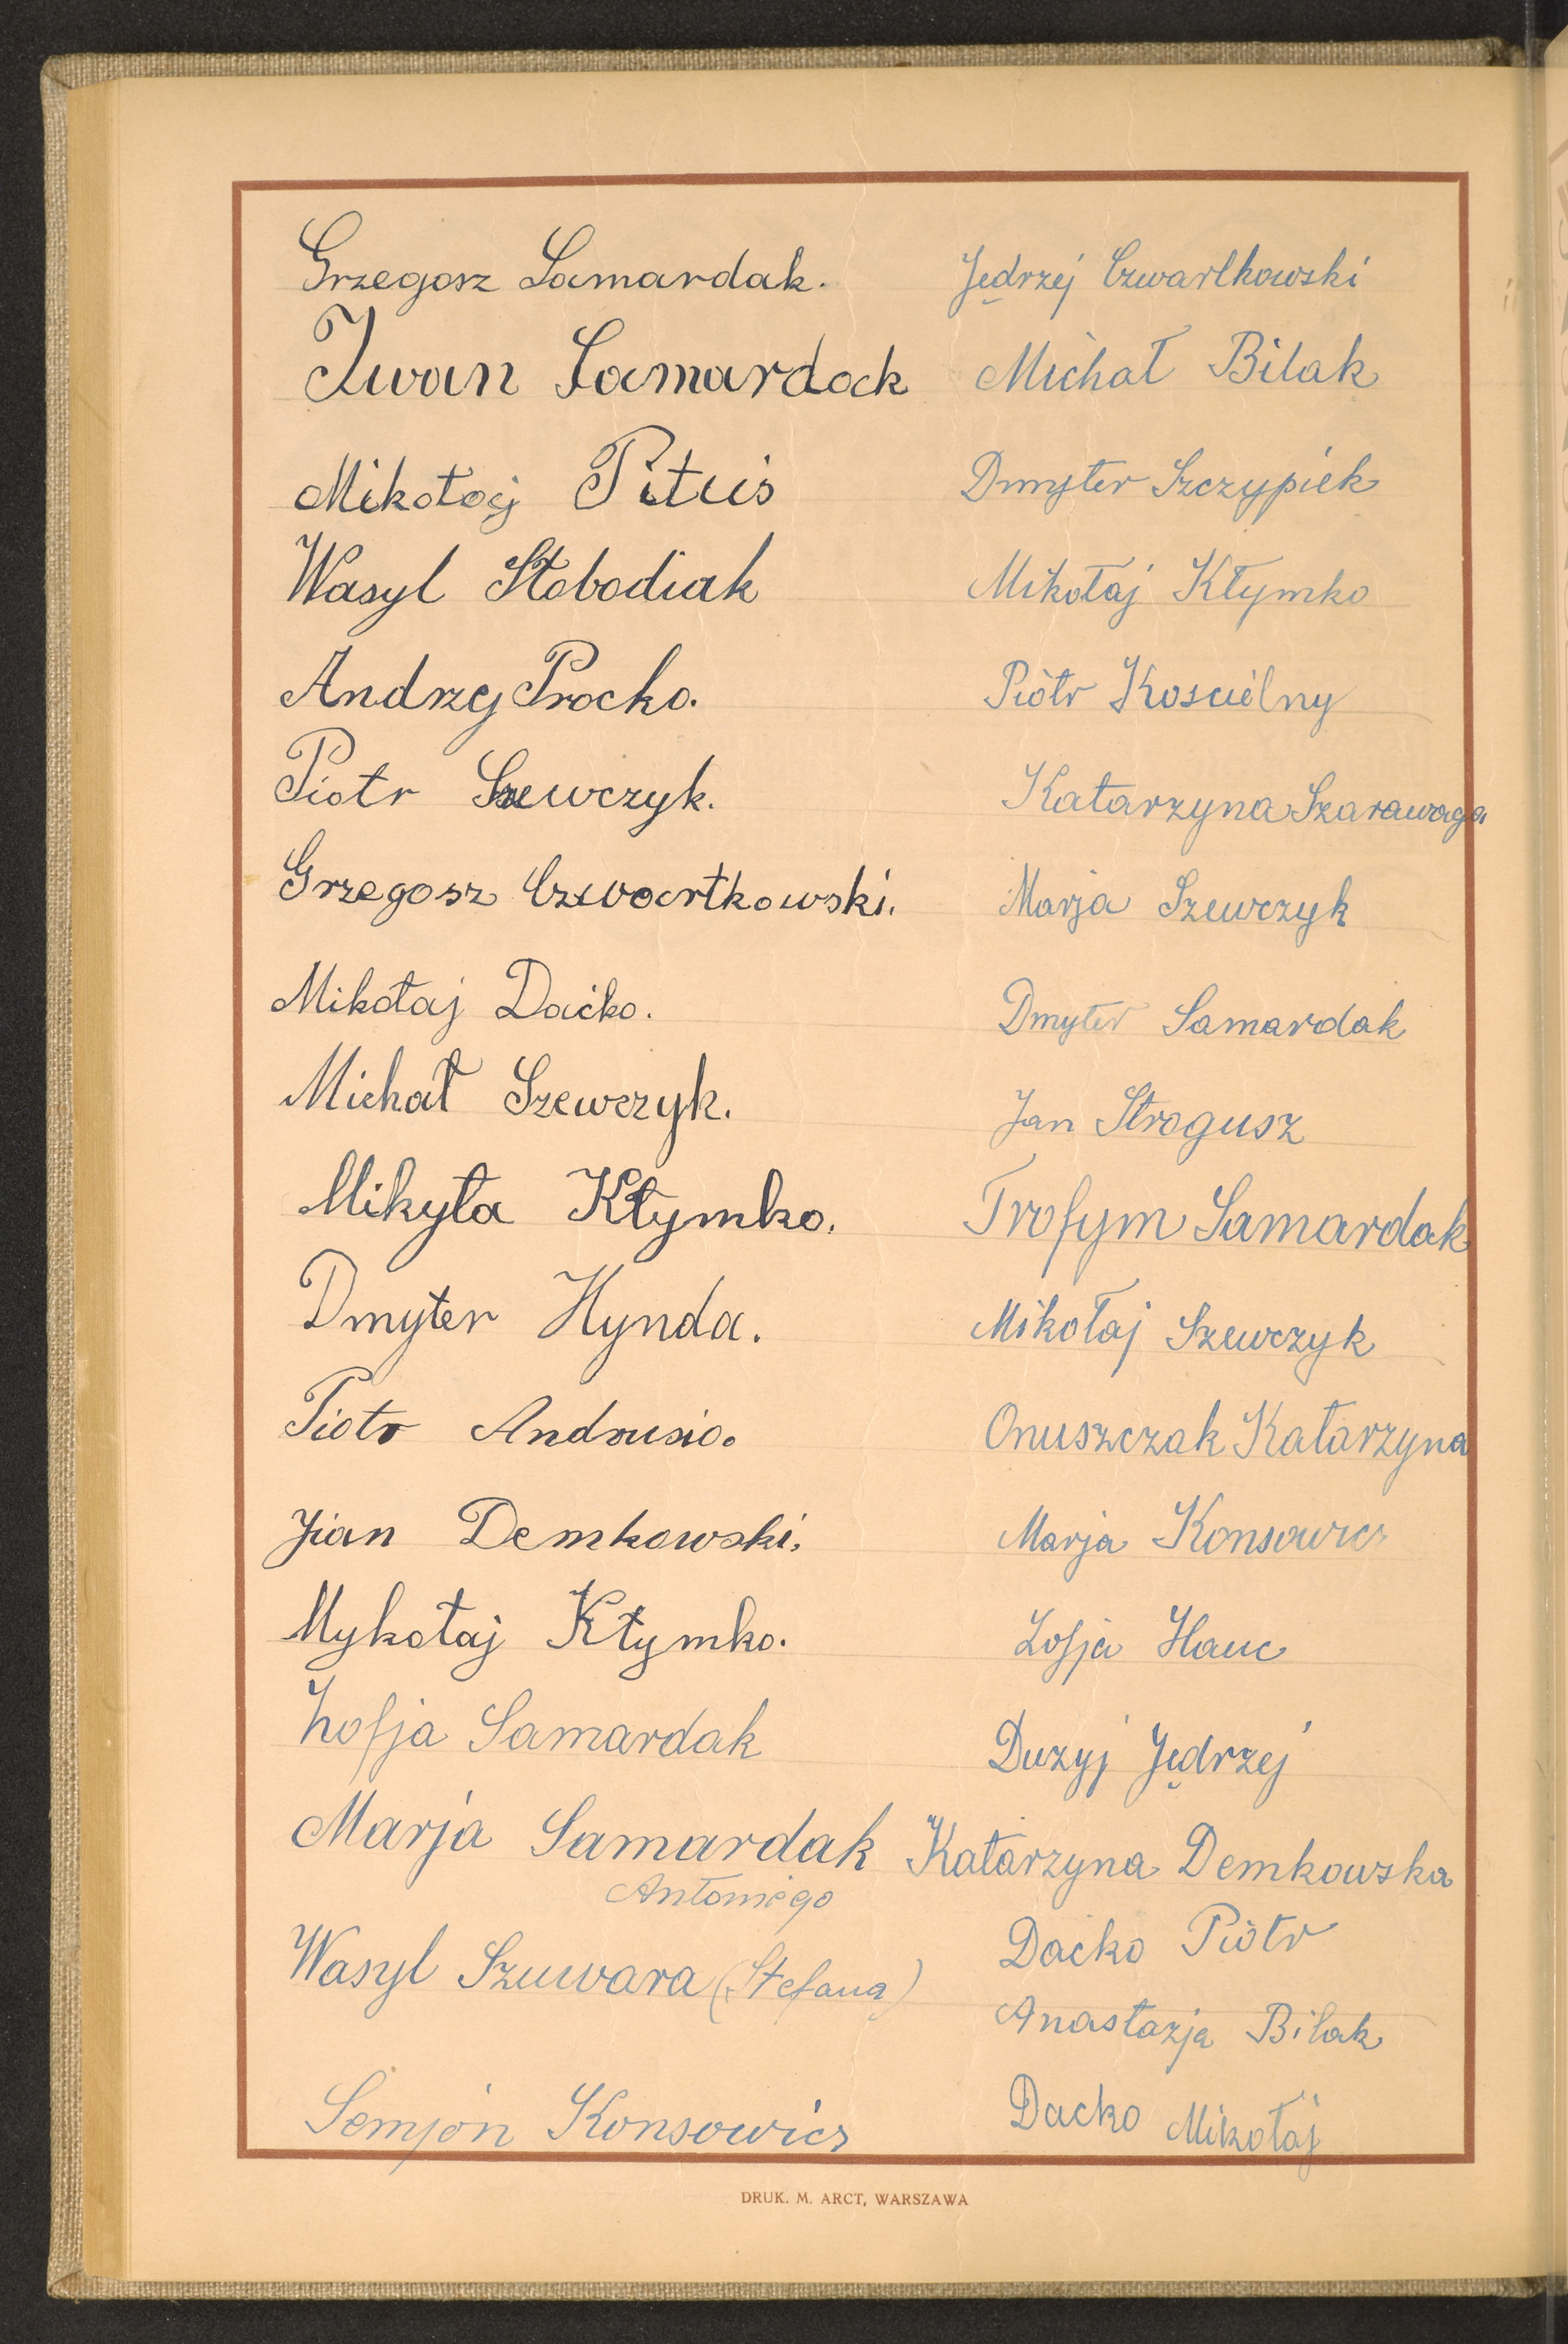 Grzegosz Samardak.
Iwan Samardak
Mikołaj Pituis
Wasyl Słobodiak
Andrzej Procko.
Piotr Szewczyk.
Grzegosz Czwartkowski.
Mikołaj Daćko.
Michał Szewczyk.
Mikyta Kłymko.
Dmyter Hynda.
Piotr Andrusio.
Jian Demkowski.
Mykołaj Kłymko.
Zofja Samardak
Marja Samardak
Antoniego
Wasyl Szuwara (Stefana)
Semjon Konsowicz
Jędrzej Czwartkowski
Michał Bilak
Dmyter Szczypiek
Mikołaj Kłymko
Piotr Koscielny
Katarzyna Szarawaga
Marja Szewczyk
Dmyter Samardak
Jan Strogusz
Trofym Samardak
Mikołaj Szewczyk
Onuszczak Katarzyna
Marja Konsowicz
Zofja Hauc
Duzyj Jędrzej
Katarzyna Demkowska
Daćko Piotr
Anastazja Bilak
Dacko Mikołaj
DRUK. M. ARCT, WARSZAWA